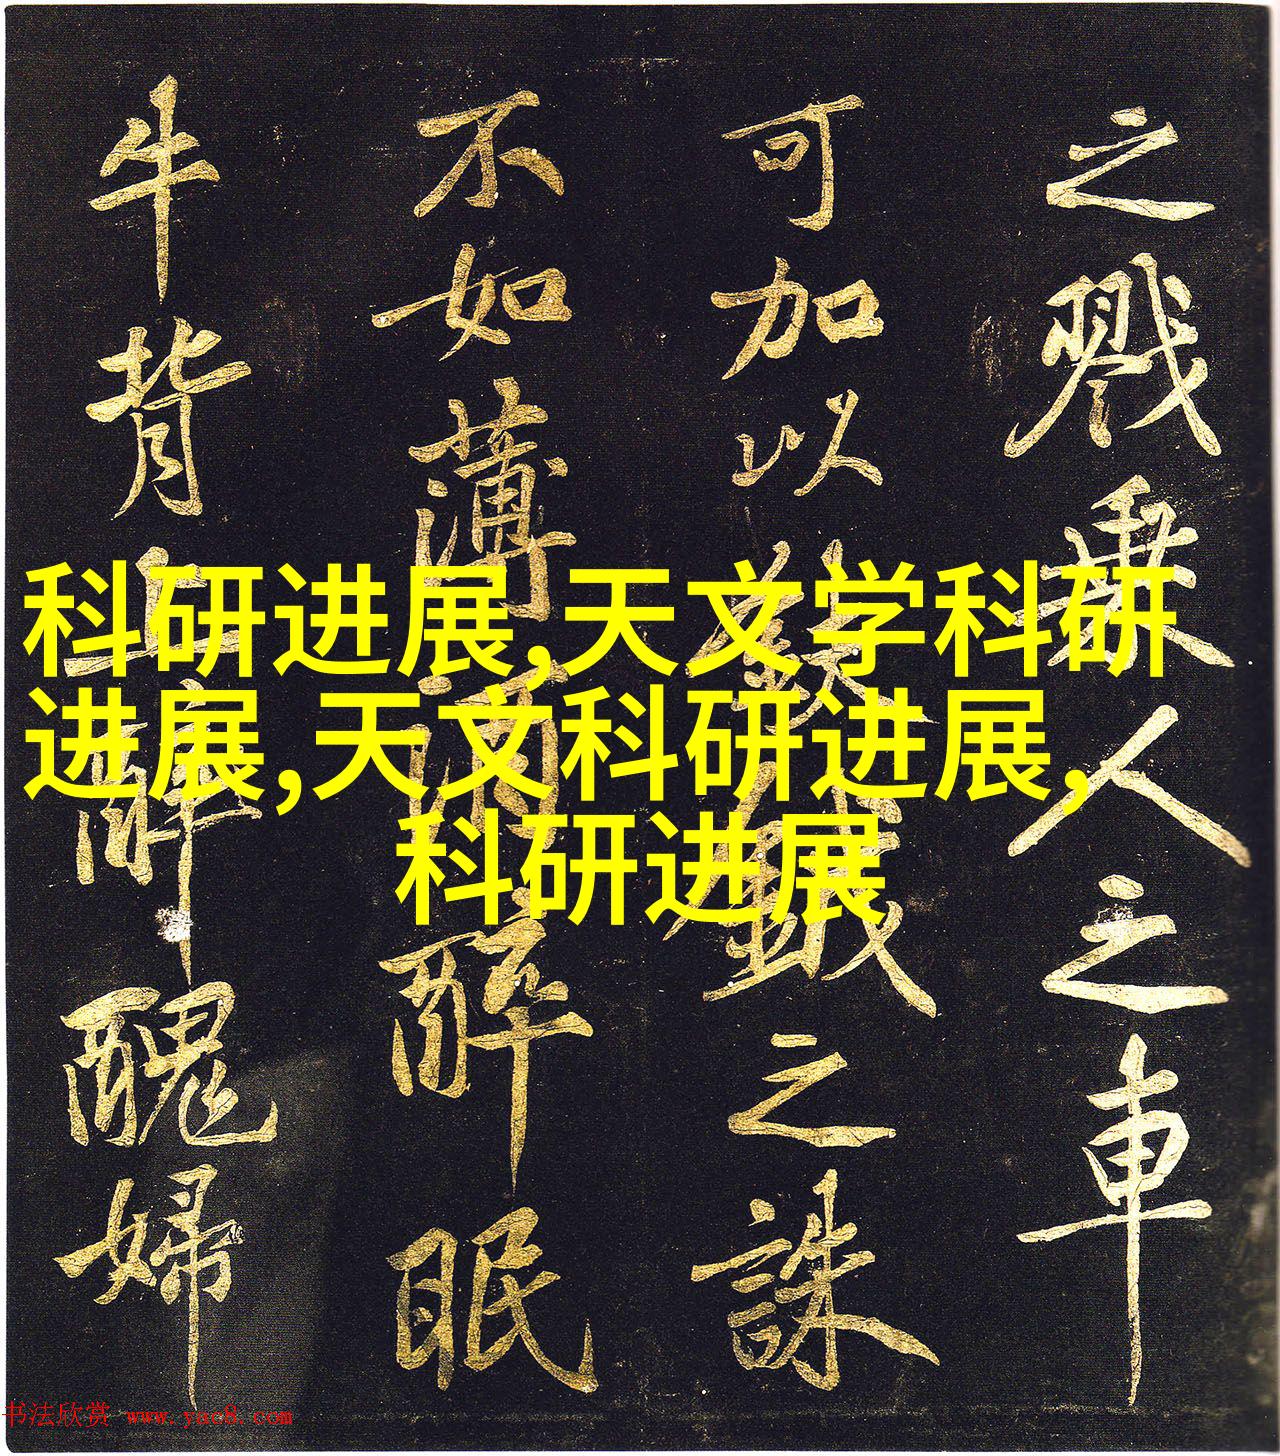 之戮乘人之車
可加以鈇鉞之誅
不如薄酒醉眠
牛背上醉醜婦
科研进展,天文学科研
进展,天文科研进展,
科研进展
书法欣赏 www.yac8.com